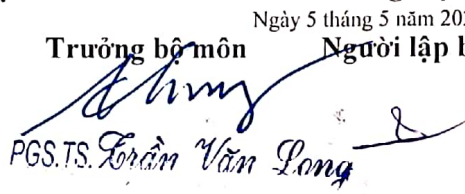 Ngày 5 tháng 5 năm 202
Trưởng bộ môn Người lập b
PGS.TS. Trần Văn Long